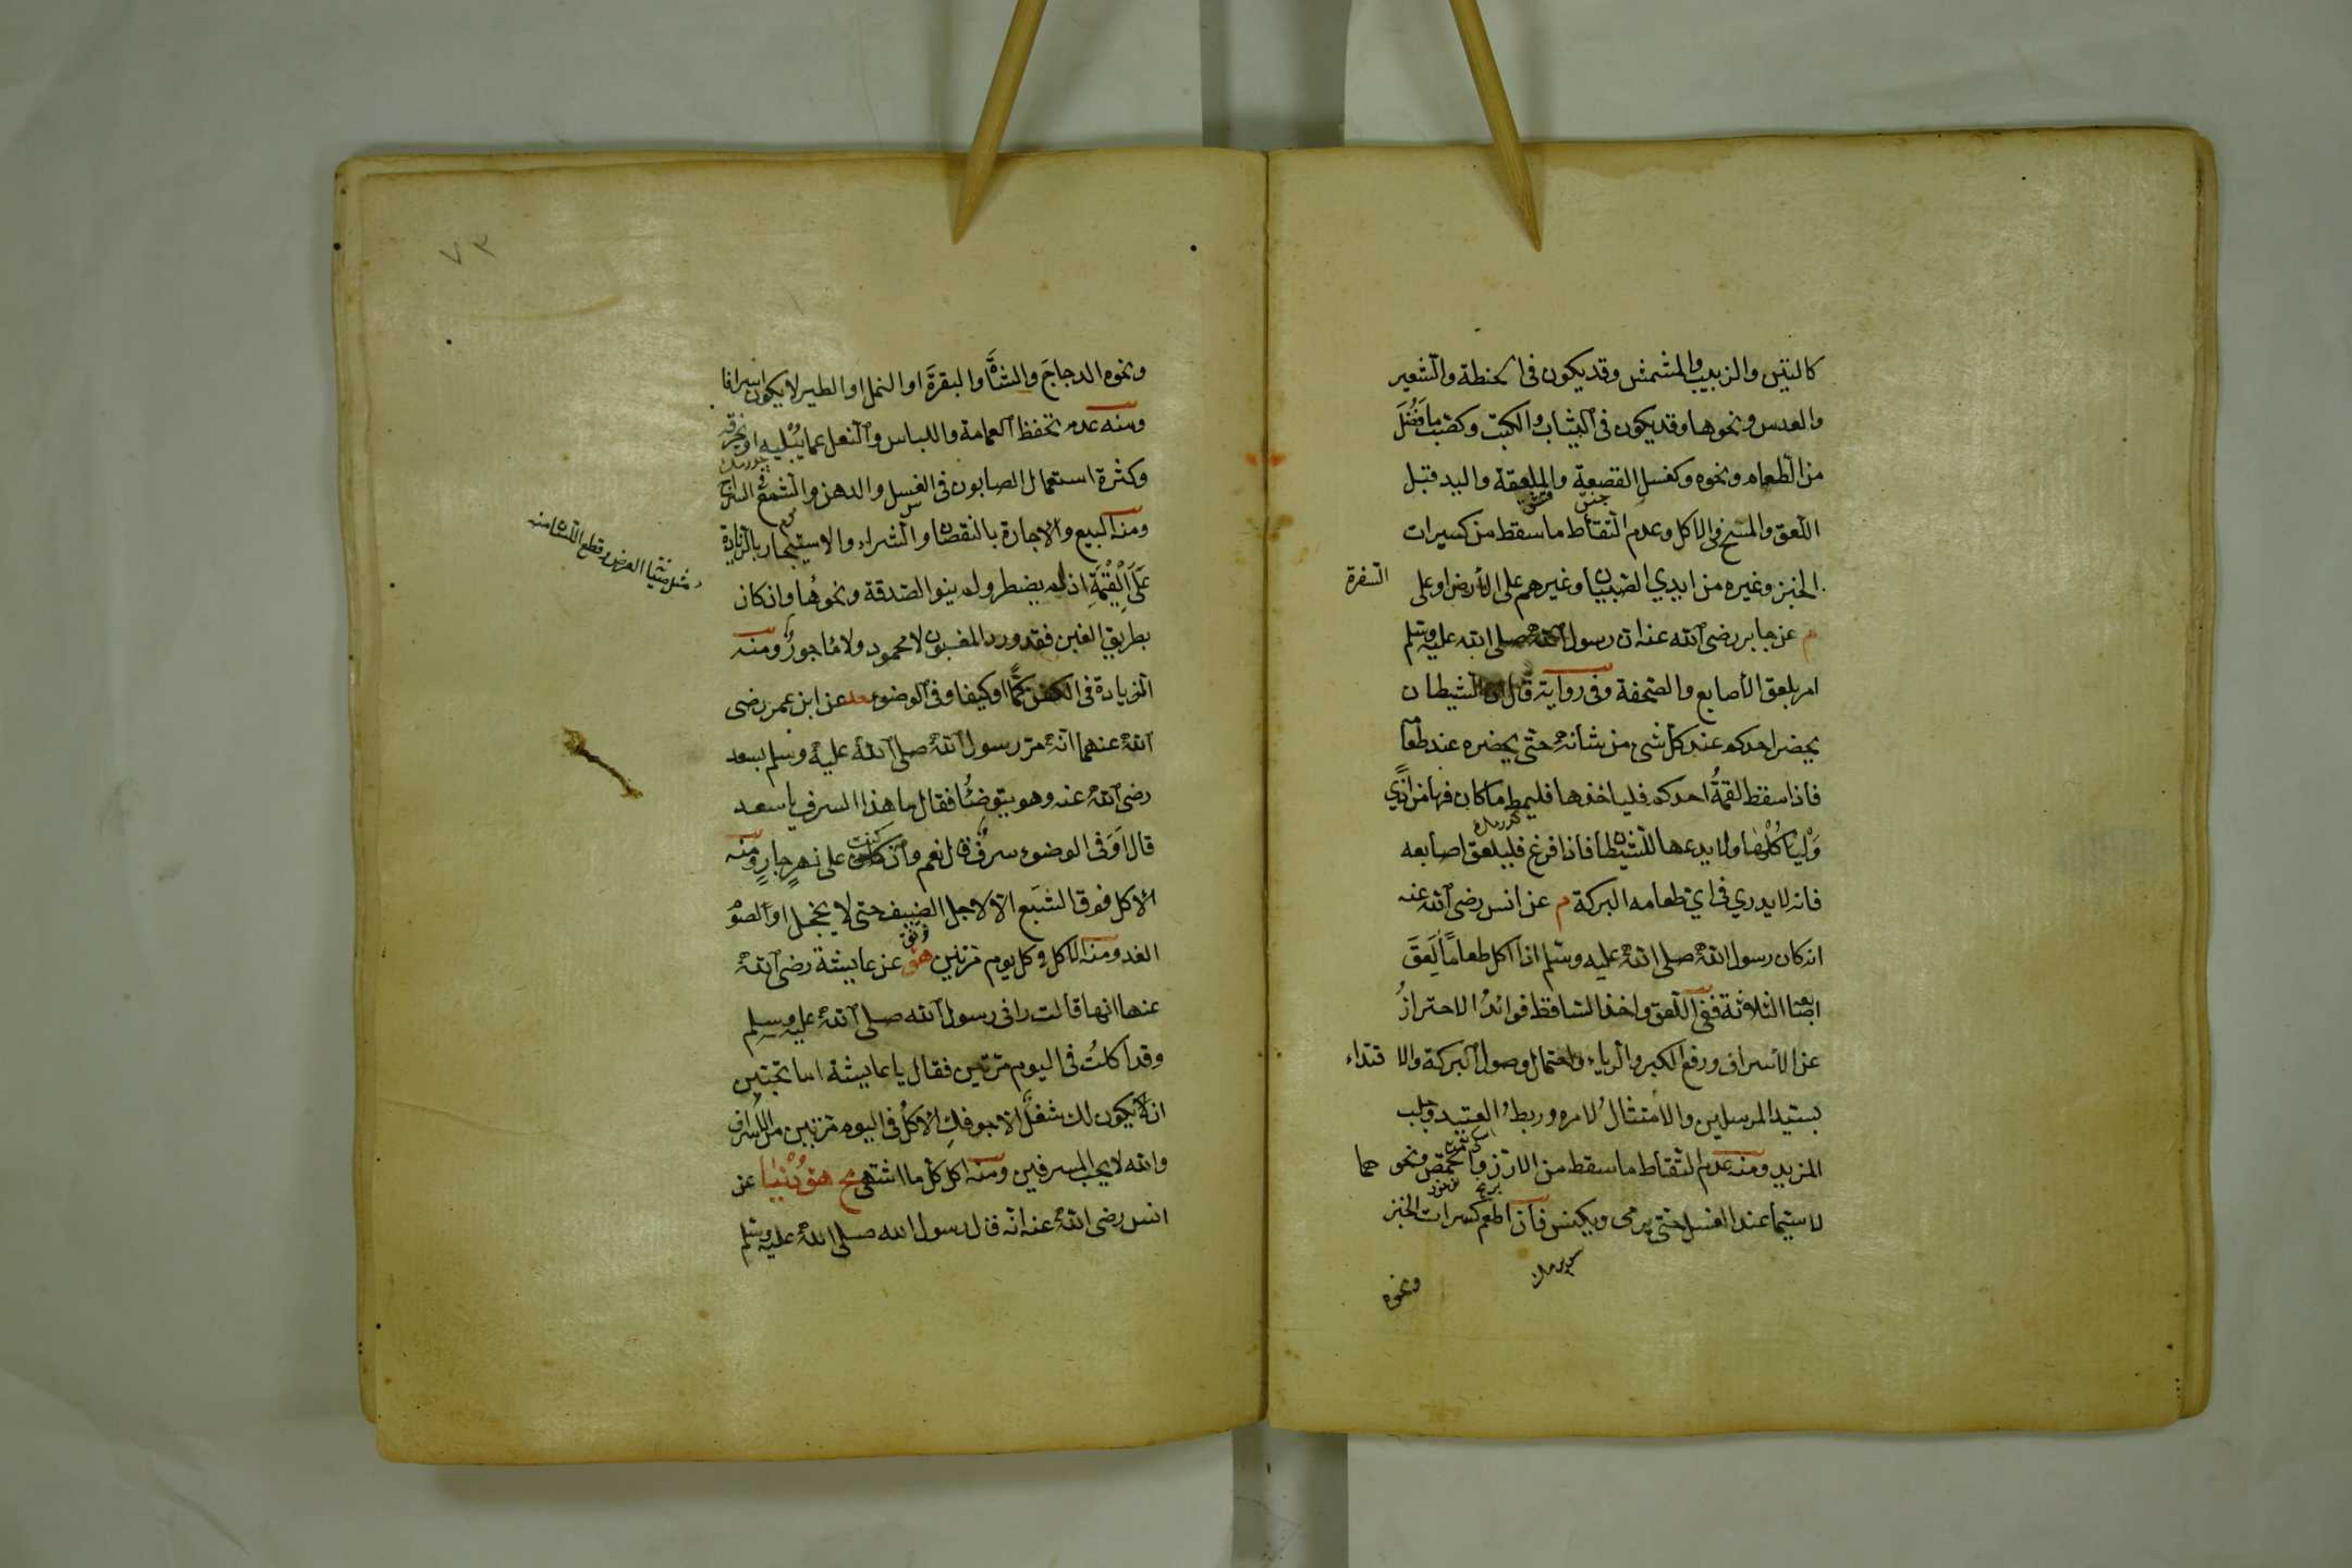 كالتين والزبيب والمشمش وقد يكون في الحنطة والشعير
والعدس ونحوها وقد يكون في الثياب والكتب وكصب ما فضل
من الطعام ونحوه وكغسل القصعة والملعقة واليد قبل
اللعق والمسح في الاكل وعدم التقاط ما سقط من كسيرات
الخبز وغيره من ايدي الصبيان وغيرهم على الارض او على السفرة
م عن جابر رضى الله عنه ان رسول الله صلى الله عليه وسلم
امر بلعق الأصابع والصحفة وفى رواية قال ان الشيطان
يحضر احدكم عند كل شئ من شأنه حتى يحضره عند طعامه
فاذا سقط لقمةُ احدكم فلياخذها فليمط ما كان فيها من اذًى
وَلْيأكُلْها ولا يدعها للشيطان فاذا فرغ فليلعق اصابعه
فانه لا يدري في اي طعامه البركة م عن انس رضى الله عنه
انه كان رسول الله صلى الله عليه وسلم اذا اكل طعاماً لَعِقَ
اصابعه الثلاثة ففى اللعق واخذ الساقط فوائدُ الاحترازُ
عن الأسراف ورفع الكبر والرياء واحتمال وصول البركة والاقتداء
بسيّد المرسلين والأمتثالُ لامره وربطُ العتيد وجلب
المزيد ومنه عدم التقاط ما سقط من الارز والحمّص ونحوهما
لا سيما عند الغسل حتى يرمى ويكنس فان اطعم كسرات الخبز
ونحوه
٧٣
ونحوه الدجاجَ والشاةَ والبقرةَ او النمل او الطير لا يكون اسرافا
ومنه عدم تحفظ العمامة واللباس والنعل عما يُبْليه او يخرقه
وكثرة استعمال الصابون في الغسل والدهن والشمع السراج
ومنه البيع والاجارة بالنقصان والشراء والاستيجار بالزيادة
عَلَى الْقِيْمَةِ اذ لم يضطر ولم ينو الصدقة ونحوها وان كان
بطريق الغبن فقد ورد المغبون لا محمود ولا مأجورٌ ومنه
الزيادة فى الكفن كمًّا او كيفا وفى الوضوء حد عن ابن عمر رضى
الله عنهما انه مرّ رسول الله صلى الله عليه وسلم بسعد
رضى الله عنه وهو يتوضئُا فقال ما هذا السرف يا سعد
قال اَوَفى الوضوء سرفٌ قال نعم وان كنت على نهرٍ جارٍ ومنه
الاكل فوق الشبَع الّا لاجل الضيف حتى لا يخجل او لصوم
الغد ومنه الاكل في كل يوم مرتين هق عن عايشة رضى الله
عنها انها قالت رانى رسول الله صلى الله عليه وسلم
وقد اكلتُ فى اليوم مرّتين فقال يا عايشة اما تحبّين
ان لا يكون لك شغلٌ الّا جوفكِ الاكلُ فى اليوم مرتين من الاسراف
والله لا يحب المسرفين ومنه اكل كل ما اشتهى مج هق دُنيا عن
انس رضى الله عنه انه قال رسول الله صلى الله عليه وسلم